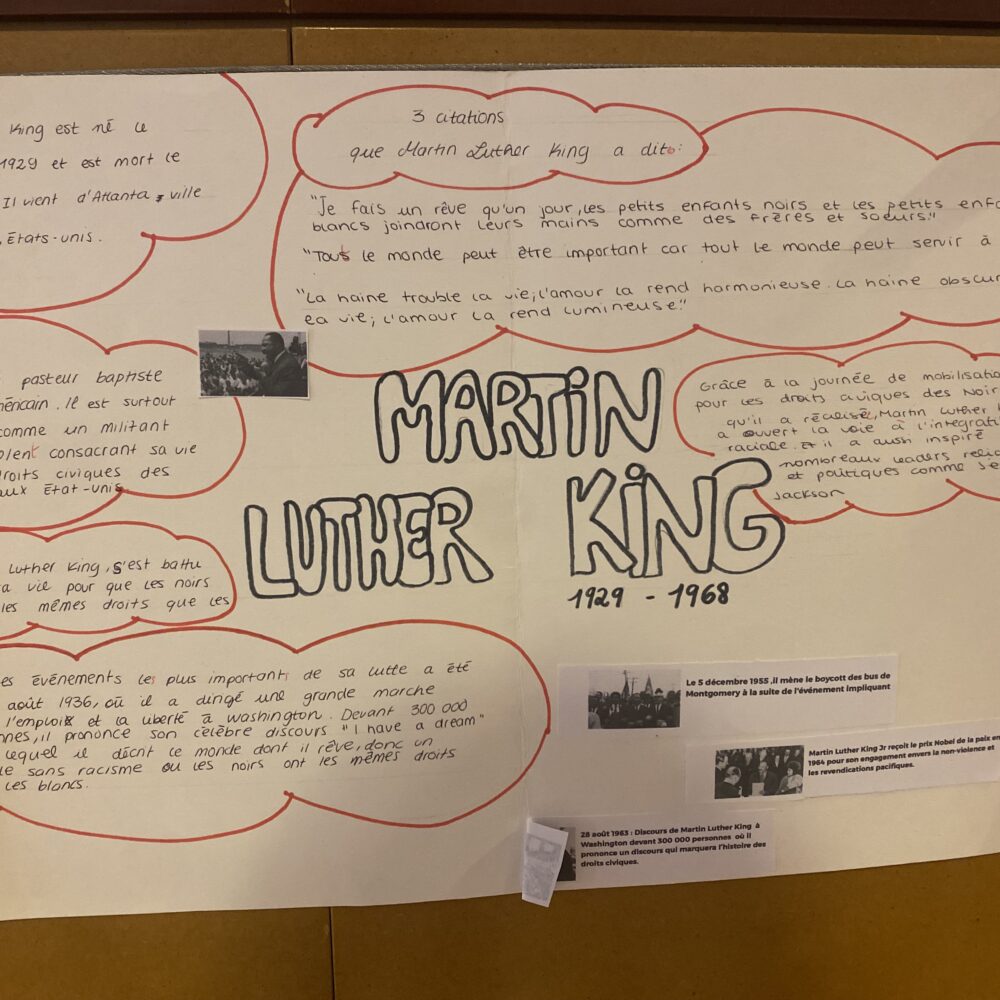 King est né le
1929 et est mort le
Il vient d'Atlanta, ville
, États-unis.
3 citations
que Martin Luther King a dit:
"Je fais un rêve qu'un jour, les petits enfants noirs et les petits enfa
blancs joindront leurs mains comme des frères et soeurs."
"Tous le monde peut être important car tout le monde peut servir à
"La haine trouble la vie; l'amour la rend harmonieuse. La haine obscur
la vie; l'amour la rend lumineuse."
pasteur baptiste
méricain. Il est surtout
comme un militant
olent consacrant sa vie
droits civiques des
aux État-unis
MARTiN
LUTHER KiNG
1929 - 1968
Grâce à la journée de mobilisatio
pour les droits civiques des Noir
qu'il a réalisé, Martin Luther
a ouvert la voie à l'intégrati
raciale. et il a aussi inspiré
nombreaux leaders relig
et politiques comme Je
Jackson
Luther King, s'est battu
a vie pour que les noirs
les mêmes droits que les
es événements les plus important de sa lutte a été
août 1936, où il a dirigé une grande marche
l'emploi et la liberté à Washington. Devant 300 000
nnes, il prononce son célèbre discours "I have a dream"
lequel il décrit le monde dont il rêve, donc un
e sans racisme ou les noirs ont les mêmes droits
les blancs.
Le 5 décembre 1955 ,il mène le boycott des bus de
Montgomery à la suite de l'événement impliquant
Martin Luther King Jr reçoit le prix Nobel de la paix en
1964 pour son engagement envers la non-violence et
les revendications pacifiques.
28 août 1963 : Discours de Martin Luther King à
Washington devant 300 000 personnes où il
prononce un discours qui marquera l'histoire des
droits civiques.